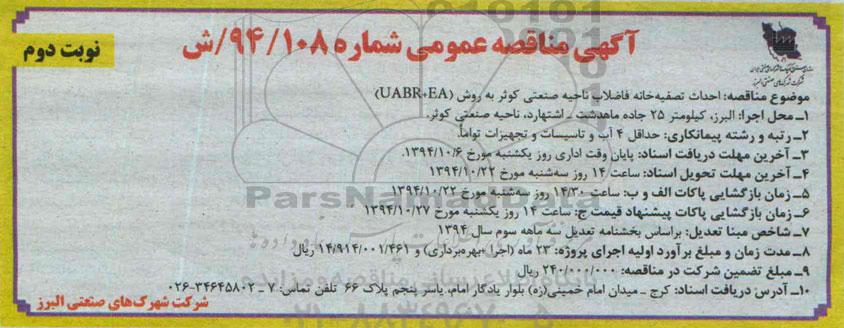 آگهی مناقصه عمومی شماره ۹۴/۱۰۸/ش
نوبت دوم
شرکت شهرک‌های صنعتی البرز
موضوع مناقصه: احداث تصفیه‌خانه فاضلاب ناحیه صنعتی کوثر به روش (UABR+EA)
۱ـ محل اجرا: البرز، کیلومتر ۲۵ جاده ماهدشت ـ اشتهارد، ناحیه صنعتی کوثر.
۲ـ رتبه و رشته پیمانکاری: حداقل ۴ آب و تاسیسات و تجهیزات تواماً.
۳ـ آخرین مهلت دریافت اسناد: پایان وقت اداری روز یکشنبه مورخ ۱۳۹۴/۱۰/۶.
۴ـ آخرین مهلت تحویل اسناد: ساعت ۱۴ روز سه‌شنبه مورخ ۱۳۹۴/۱۰/۲۲
۵ـ زمان بازگشایی پاکات الف و ب: ساعت ۱۴/۳۰ روز سه‌شنبه مورخ ۱۳۹۴/۱۰/۲۲
۶ـ زمان بازگشایی پاکات پیشنهاد قیمت ج: ساعت ۱۴ روز یکشنبه مورخ ۱۳۹۴/۱۰/۲۷
۷ـ شاخص مبنا تعدیل: براساس بخشنامه تعدیل سه ماهه سوم سال ۱۳۹۴
۸ـ مدت زمان و مبلغ برآورد اولیه اجرای پروژه: ۲۳ ماه (اجرا ـ بهره‌برداری) و ۱۴/۹۱۴/۰۰۱/۴۶۱ ریال
۹ـ مبلغ تضمین شرکت در مناقصه: ۲۴۰/۰۰۰/۰۰۰ ریال
۱۰ـ آدرس دریافت اسناد: کرج ـ میدان امام خمینی(ره) بلوار یادگار امام، یاسر پنجم پلاک ۶۶ تلفن تماس: ۷ ـ ۳۴۶۴۵۸۰۲-۰۲۶
شرکت شهرک‌های صنعتی البرز
ParsNamadData